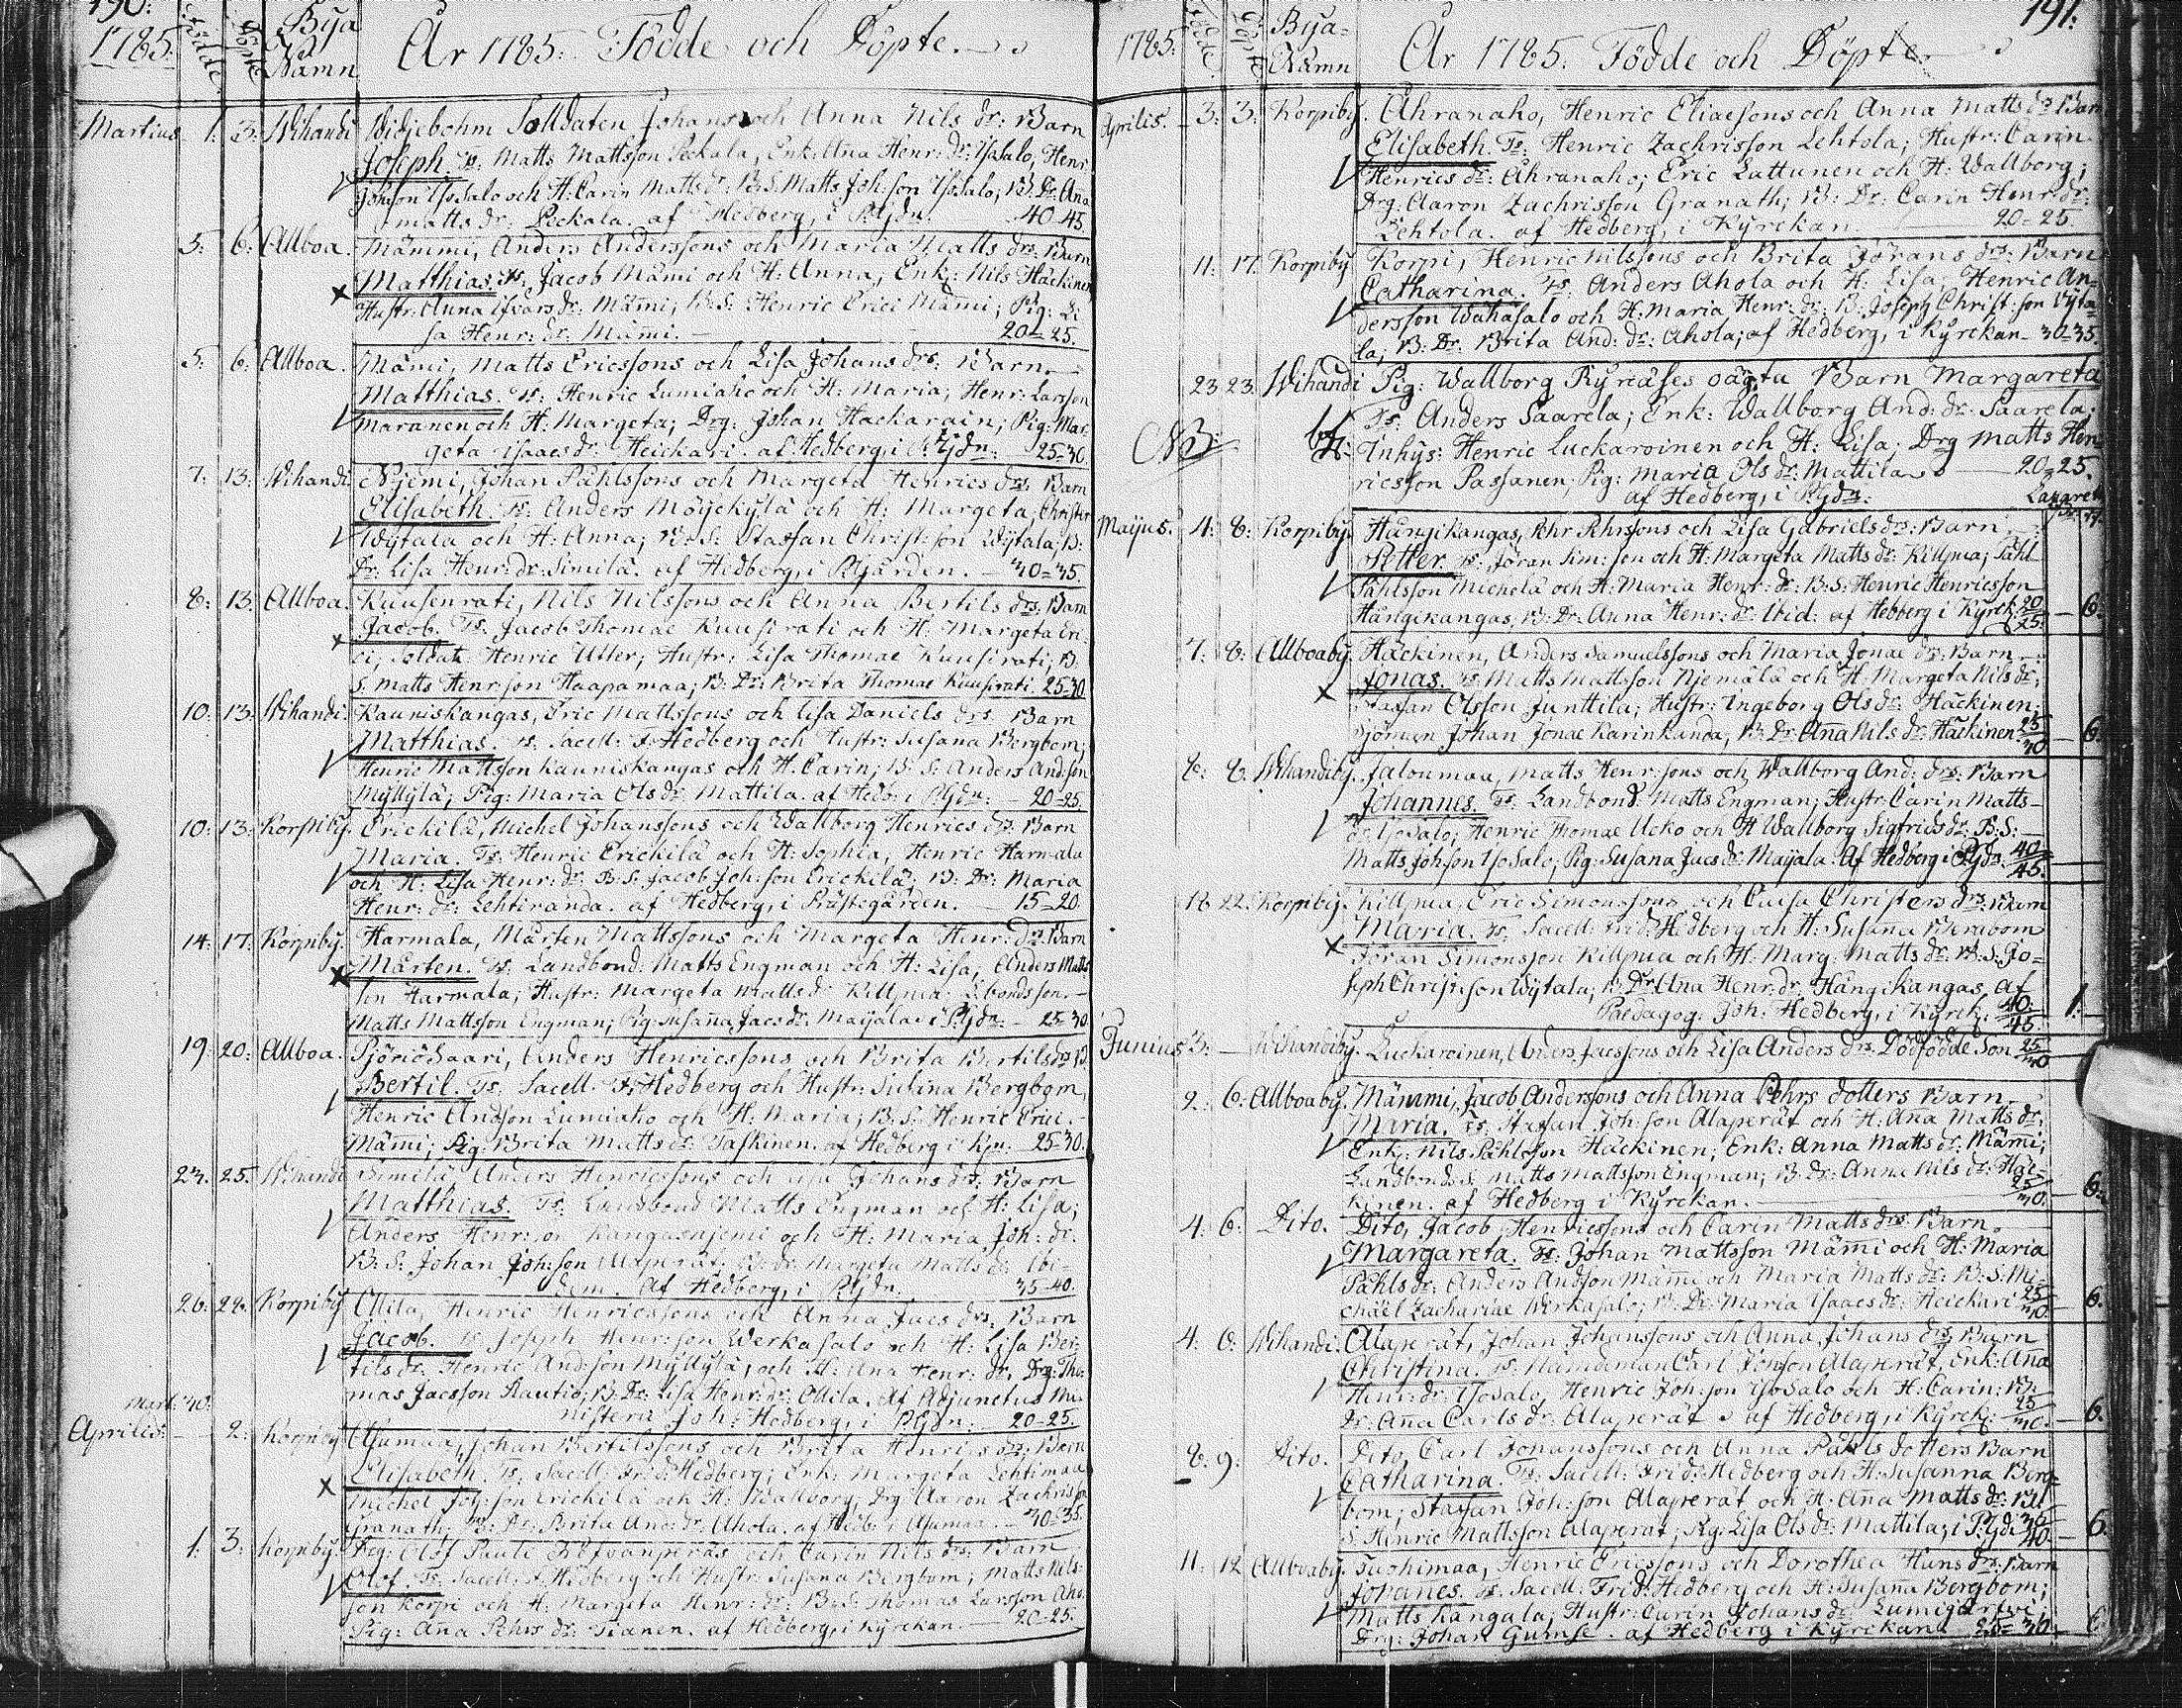 190:
1785. Födde. Döpte. Bya Namn År 1785. Födde och Döpte.
Martius 1: 3: Wihandi Widjebohm Solldaten Johans och Anna Nils dr: Barn
Joseph. Ts. Matts Mattsson Peckala, Enk: Aña Henr: dr: Ysosalo, Henr:
Johsson Ysosalo och H: Carin Matts dr: B.S. Matts Joh:son Ysosalo; B: Dr: Ana
Matts dr: Peckala. af Hedberg, i Pgdn. 40-45.
5: 6: Allboa. Mämmi, Anders Anderssons och Maria Matts drs: Barn
Matthias. Ts. Jacob Mämi och H: Anna; Enk: Nils Häckinen
Hustr: Anna Ifvars dr: Mämi; B: S: Henric Erici Mämi; Pig: Li
sa Henr: dr: Mämi. 20-25.
5: 6: Allboa. Mämi, Matts Ericssons och Lisa Johans drs: Barn
Matthias. Ts. Henric Lumiaho och H: Maria; Henr: Larsson
Maranen och H: Margeta; Drg: Johan Hackarain; Pig: Mar-
geta Isaacs dr: Heickari. af Hedberg, i Pgdn: 25-30
7: 13: Wihandi Njemi, Johan Påhlssons och Margeta Henrics drs: Barn
Elisabeth. Ts: Anders Möyckylä och H: Margeta, Christer
Wytala och H: Anna; B: S: Staffan Christ:son Wytala; B:
Dr: Lisa Henr: dr: Similä. af Hedberg, i Pgården. 40-45.
8: 13: Allboa. Kuusenrati, Nils Nilssons och Anna Bertils drs: Barn
Jacob. Ts. Jacob Thomae Kuusirati och H: Margeta Eri
ci; Soldat: Henric Utter; Hustr: Lisa Thomae Kuusirati; B:
S: Matts Henr:son Haapamaa; B: Dr: Brita Thomae Kuusirati. 25-30
10: 13: Wihandi: Kauniskangas, Eric Mattssons och Lisa Daniels drs. Barn
Matthias. Ts. Sacell: F: Hedberg och Hustr: Susana Bergbom;
Henric Mattsson Kauniskangas och H: Carin; B: S: Anders And:son
Myllylä; Pig: Maria Ols dr: Mattila. af Hedb: i Pgdn: 20-25.
10: 13: Korpiby. Erickilä, Michel Johanssons och Wallborg Henrics drs: Barn
Maria. Ts: Henric Erickilä och H: Sophia, Henric Harmala
och H: Lisa Henr: dr. B: S: Jacob Joh:son Erickilä; B: Dr: Maria
Henr: dr: Lehtiranda. af Hedberg, i Prästegården. 15-20
14: 17: Korpiby. Harmala, Mårten Mattssons och Margeta Henr: dr. Barn
Mårten. Ts. Landbond: Matts Engman och H: Lisa, Anders Matts
son Harmala; Hustr: Margeta Matts dr Killpua: Lbonds son.
Matts Mattsson Engman; Pig: Susaña Jacs dr: Maijala. i Pgdn: 25-30
19: 20: Allboa. Pjöriösaari, Anders Henricssons och Brita Bertils drs B.
Bertil. Ts. Sacell: F: Hedberg och Hustr: Susana Bergbom,
Henric Andson Lumiaho och H: Maria; B. S. Henric Erici
Mämi; Pig: Brita Matts dr: Saskinen. af Hedberg i Kn: 25-30.
23: 25: Wihandi Similä, Anders Henricssons och Lisa Johans drs: Barn
Matthias. Ts: Landbond Matts Engman och H: Lisa;
Anders Henr:son Kangasnjemi och H: Maria Joh: dr:
B: S: Johan Joh:son Alaperät. B: Dr: Margeta Matts dr: Ibi-
dem. af Hedberg, i Pgdn. 35-40.
26: 28. Korpiby Ollila, Henric Henricssons och Anna Jacs drs: Barn
Jacob. Ts Joseph Henr:son Werkasalo och H: Lisa Ber-
tils dr: Henric And:son Myllylä, och H: Ana Henr: dr. Drg: Tho-
mas Jacsson Rautio; B: Dr: Lisa Henr: dr: Ollila. Af Adjunctus Mi-
nisterii Joh: Hedberg, i Pgdn: 20-25.
Mart: 30:
Aprilis: 2: Korpiby Asumaa, Johan Bertilssons och Brita Henrics drs: Barn
Elisabeth. Ts: Sacell: Frid: Hedberg; Enk: Margeta Lehtimaa
Michel Joh:son Erickilä och H: Wallborg, Drg Aaron Zachrisson
Granath; B: Dr: Brita And: dr: Ahola. af Hedb: i Asumaa. 30-35.
1: 3: Korpiby. Reg: Olof Pauli Refvanperäs och Carin Nils drs: Barn
Olof. Ts: Sacell: F: Hedberg och Hustr: Susana Bergbom; Matts Nils-
son Korpi och H: Margeta Henr: dr: B: S: Thomas Larsson Aho.
Pig: Aña Pehrs dr: Tianen. af Hedberg, i Kyrckan 20-25.
191.
1785. Födde. Döpte. Bya-Namn År 1785. Födde och Döpte
Aprilis. 3: 3: Korpiby. Ahranaho, Henric Eliaesons och Anna Matts dr Barn
Elisabeth. Ts: Henric Zachrisson Lehtola; Hustr: Carin
Henrics dr: Ahranaho; Eric Lattunen och H: Wallborg;
Drg: Aaron Zachrisson Granath; B: Dr: Carin Henr: dr:
Lehtola. af Hedberg, i Kyrckan. 20-25.
11: 17: Korpiby Korpi, Henric Nilssons och Brita Jörans drs: Barn
Catharina. Ts: Anders Ahola och H: Lisa; Henric An-
dersson Wahasalo och H: Maria Henr: dr: B: Joseph Christ:son Wyta-
la; B: Dr: Brita And: dr: Ahola; af Hedberg, i Kyrckan 30-35
23 23. Wihandi Pig: Wallborg Kyriäses oägta Barn Margareta
Ts: Anders Saarela; Enk: Wallborg And: dr. Saarela;
NB: Inhys: Henric Luckaroinen och H: Lisa, Drg Matts Hen
ricsson Passanen; Pig: Maria Ols dr: Mattila 20-25.
af Hedberg, i Pgdn: Lazaret
Majus. 4: 8: Korpiby. Hångikangas, Pehr Pehrsons och Lisa Gabriels drs: Barn
Petter. Ts. Jöran Sim:son och H: Margeta Matts dr: Killpua; Påhl
Påhlsson Michelä och H: Maria Henr: dr: B: S: Henric Henricsson
Hångikangas; B: Dr: Anna Henr: dr: Ibid: af Hedberg i Kyrck: 20/25: 6:
7: 8: Allboaby. Häckinen, Anders Samuelssons och Maria Jonae drs: Barn
Jonas. Ts. Matts Mattsson Njemälä och H: Margeta Nils dr;
Staffan Olsson Junttila; Hustr: Ingeborg Ols dr: Häckinen.
Sjöman Johan Jonae Karinkanda; B: Dr: Aña Nils dr: Häckinen: 25/30 6:
8: 8. Wihandiby. Jaloumaa, Matts Henr:sons och Wallborg And: drs: Barn
Johannes. Ts: Landbond: Matts Engman; Hustr: Carin Matts-
dr Ysosalo; Henric Thomae Ucko och H Wallborg Sigfrids dr: B: S:
Matts Johsson Ysosalo; Pig: Susana Jacs dr: Maijala. Af Hedberg i Pgdn. 40/45.
18 22. Korpiby. Killpua, Eric Simonssons och Caisa Christers drs: Barn
Maria. Ts. Sacell: Frid: Hedberg och H: Susana Bergbom
Jöran Simonsson Killpua och H: Marg. Matts dr: B: S: Jo-
seph Christ:son Wytala; B: Dr Ana Henr: dr: Hångikangas. Af
Paedagog: Joh: Hedberg, i Kyrck: 40:/45 1:
Junius 3: Wihandiby. Luckaroinen, Anders Jacssons och Lisa Anders drs. Dödfödde Son 25/30
2. 6: Allboaby. Mämmi, Jacob Anderssons och Anna Pehrs dotters Barn
Maria. Ts. Staffan Joh:son Alaperät och H: Ana Matts dr:
Enk: Nils Påhlsson Häckinen; Enk: Anna Matts dr: Mämi;
Landbonds S: Matts Mattsson Engman; B: Dr: Anna Nils dr: Häc-
kinen. af Hedberg i Kyrckan. 25/30. 6:
4: 6: Dito. Dito, Jacob Henricssons och Carin Matts drs: Barn.
Margareta. Ts: Johan Mattsson Mämi och H: Maria
Påhls dr: Anders Andson Mämi och Maria Matts dr: B: S: Mi-
chäel Zachariae Wirkasalo; B: Dr: Maria Isaacs dr: Heickari 25/30. 6.
4: 6: Wihandi. Alaperät, Johan Johanssons och Anna Johans drs. Barn
Christina. Ts. Nämdeman Carl Johsson Alaperät, Enk: Aña
Henr: dr: Ysosalo, Henric Joh:son Ysosalo och H: Carin: B:
Dr: Aña Carls dr: Alaperät. af Hedberg, i Kyrck: 25/30. 6.
8. 9: Dito. Dito, Carl Johanssons och Anna Påhls dotters Barn
Catharina. Ts: Sacell: Frid: Hedberg och H: Susanna Berg-
bom; Staffan Joh:son Alaperät och H: Aña Matts dr: B:
S: Henric Mattsson Alaperät; Pig: Lisa Ols dr: Mattila; i Pgdn 36/40. 6.
11: 12 Allboaby. Tuohimaa, Henric Ericssons och Dorothea Hans drs: Barn
Johanes. Ts. Sacell: Frid: Hedberg och H: Susana Bergbom;
Matts Kangala; Hustr: Carin Johans dr: Lumijerfvi.
Drg: Johan Gumse. af Hedberg i Kyrckan 25-30. 6.